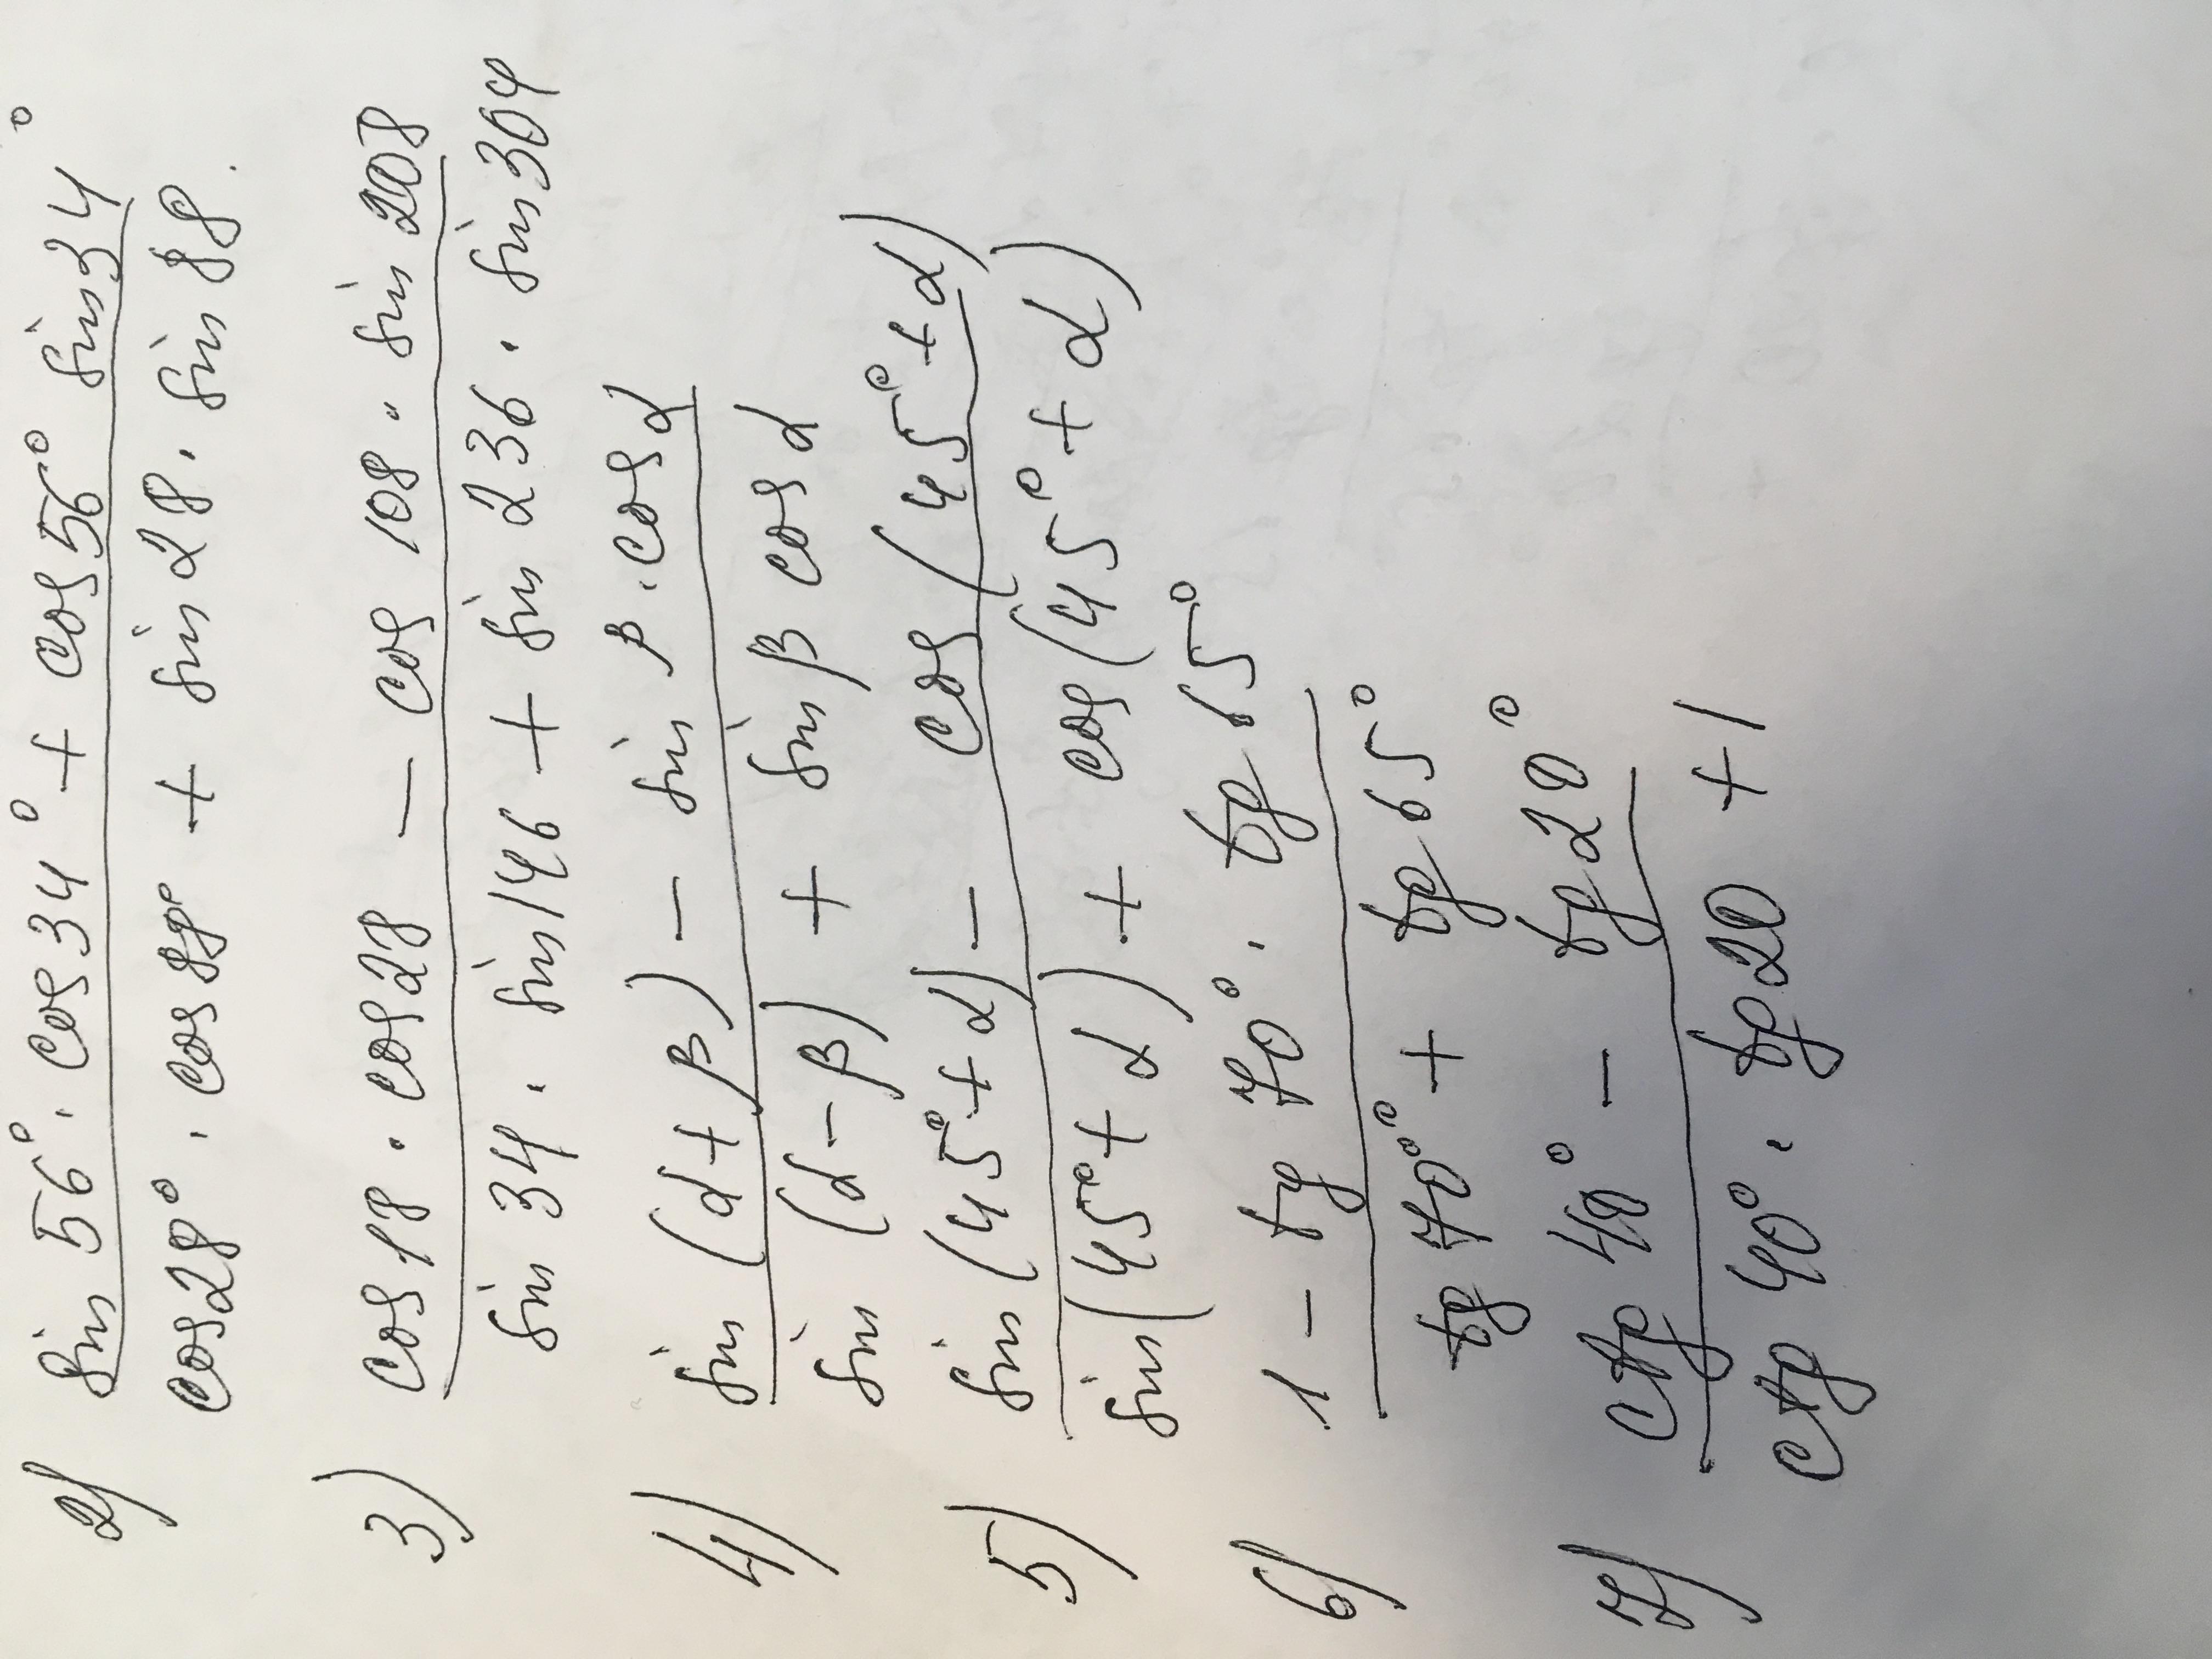 2) sin 56° · cos 34° + cos 56° sin 34°
cos 28° · cos 88° + sin 28 · sin 88.
3) cos 18 · cos 28 − cos 108 · sin 208
sin 34 · sin 146 + sin 236 · sin 304
4) sin (α + β) − sin β · cos α
sin (α − β) + sin β cos α
5) sin (45° + α) − cos (45° + α)
sin (45° + α) + cos (45° + α)
6) 1 − tg 70° · tg 65°
tg 70° + tg 65°
7) ctg 40° − tg 20°
ctg 40° · tg 20 + 1